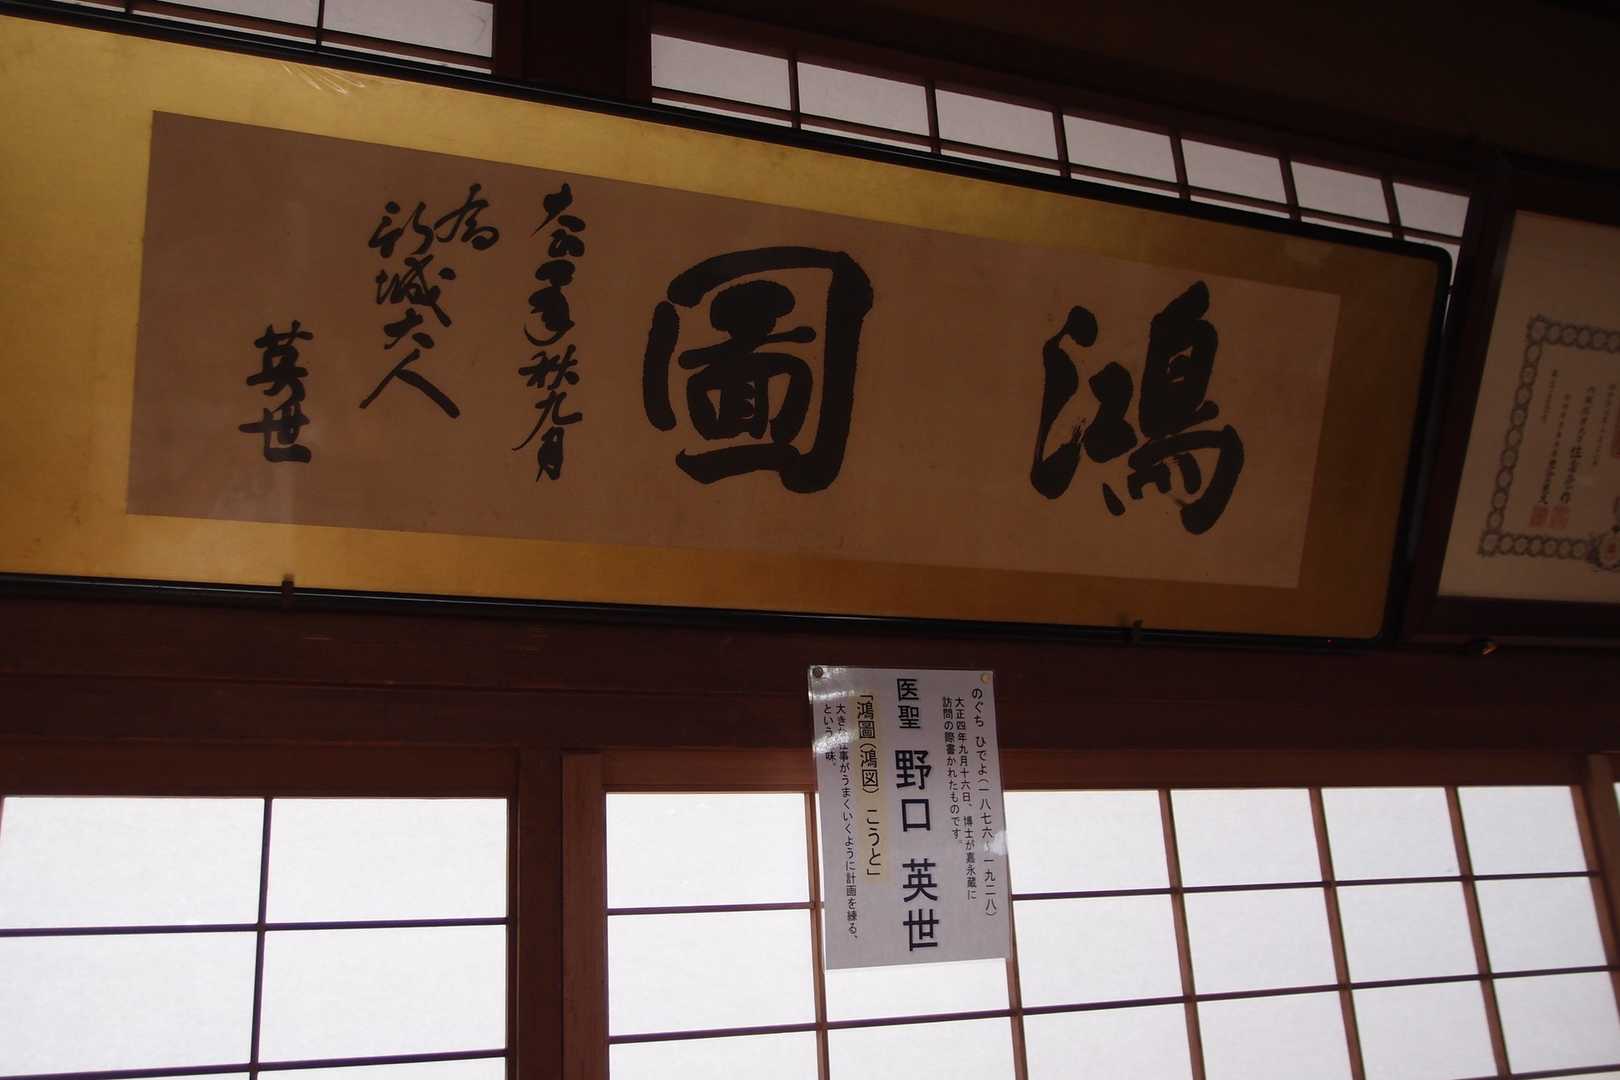 鴻圖
大正四年秋九月
為
新城大人
英世
のぐち ひでよ(一八七六~一九二八)
大正四年九月十六日、博士が嘉永蔵に
訪問の際書かれたものです。
医聖 野口 英世
「鴻圖(鴻図) こうと」
大きな仕事がうまくいくように計画を練る、
という意味。